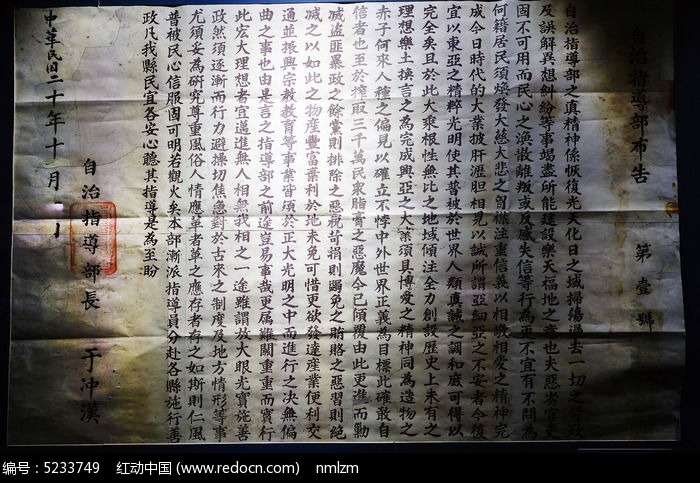 自治指導部布告
第壹號
自治指導部之真精神係恢復光天化日之域掃蕩過去一切之苛政
及誤解異想糾紛等事竭盡所能建設樂天福地之意也夫惡劣官吏
固不可用而民心之渙散離叛或反感失信等行為更不宜有不問為
何籍居民須煥發大慈大悲之習性注重信義以相敬相愛之精神完
成今日時代的大業披肝瀝胆相見以誠所謂亞細亞之不安者今後
宜以東亞之精粹光明使其普被於世界人類真誠之調和庶可得以
完全矣且於此大乘根性無比之地域傾注全力創設歷史上未有之
理想樂土換言之為完成興亞之大業須具博愛之精神同為造物之
赤子何來人種之偏見以確立不悖中外世界正義為目標此確敢自
信者也至於搾取三千萬民衆脂膏之惡魔今已傾覆由此更進而勦
滅盜匪暴政之餘黨則排除之惡稅苛捐則蠲免之賄賂之惡習則絕
滅之以如此之物產豐富棄利於地未免可惜更欲發達產業便利交
通並振興宗教教育等事業皆須於正大光明之中而進行之決無偏
曲之事也由是言之指導部之前途豈易事哉更屬難關重重而實行
此宏大理想者宜邁進無人相無我相之一途雖謂放大眼光實施善
政然須逐漸而行力避操切焦急對於古來之制度及地方情形等事
尤須妥為硏究尊重風俗人情應革者革之應存者存之如斯則仁風
普被民心信服固可明若觀火矣本部漸派指導員分赴各縣施行善
政凡我縣民宜各安心聽其指導是為至盼
自治指導部長 于冲漢
中華民國二十年十月 日
编号：5233749 红动中国 (www.redocn.com) nmlzm